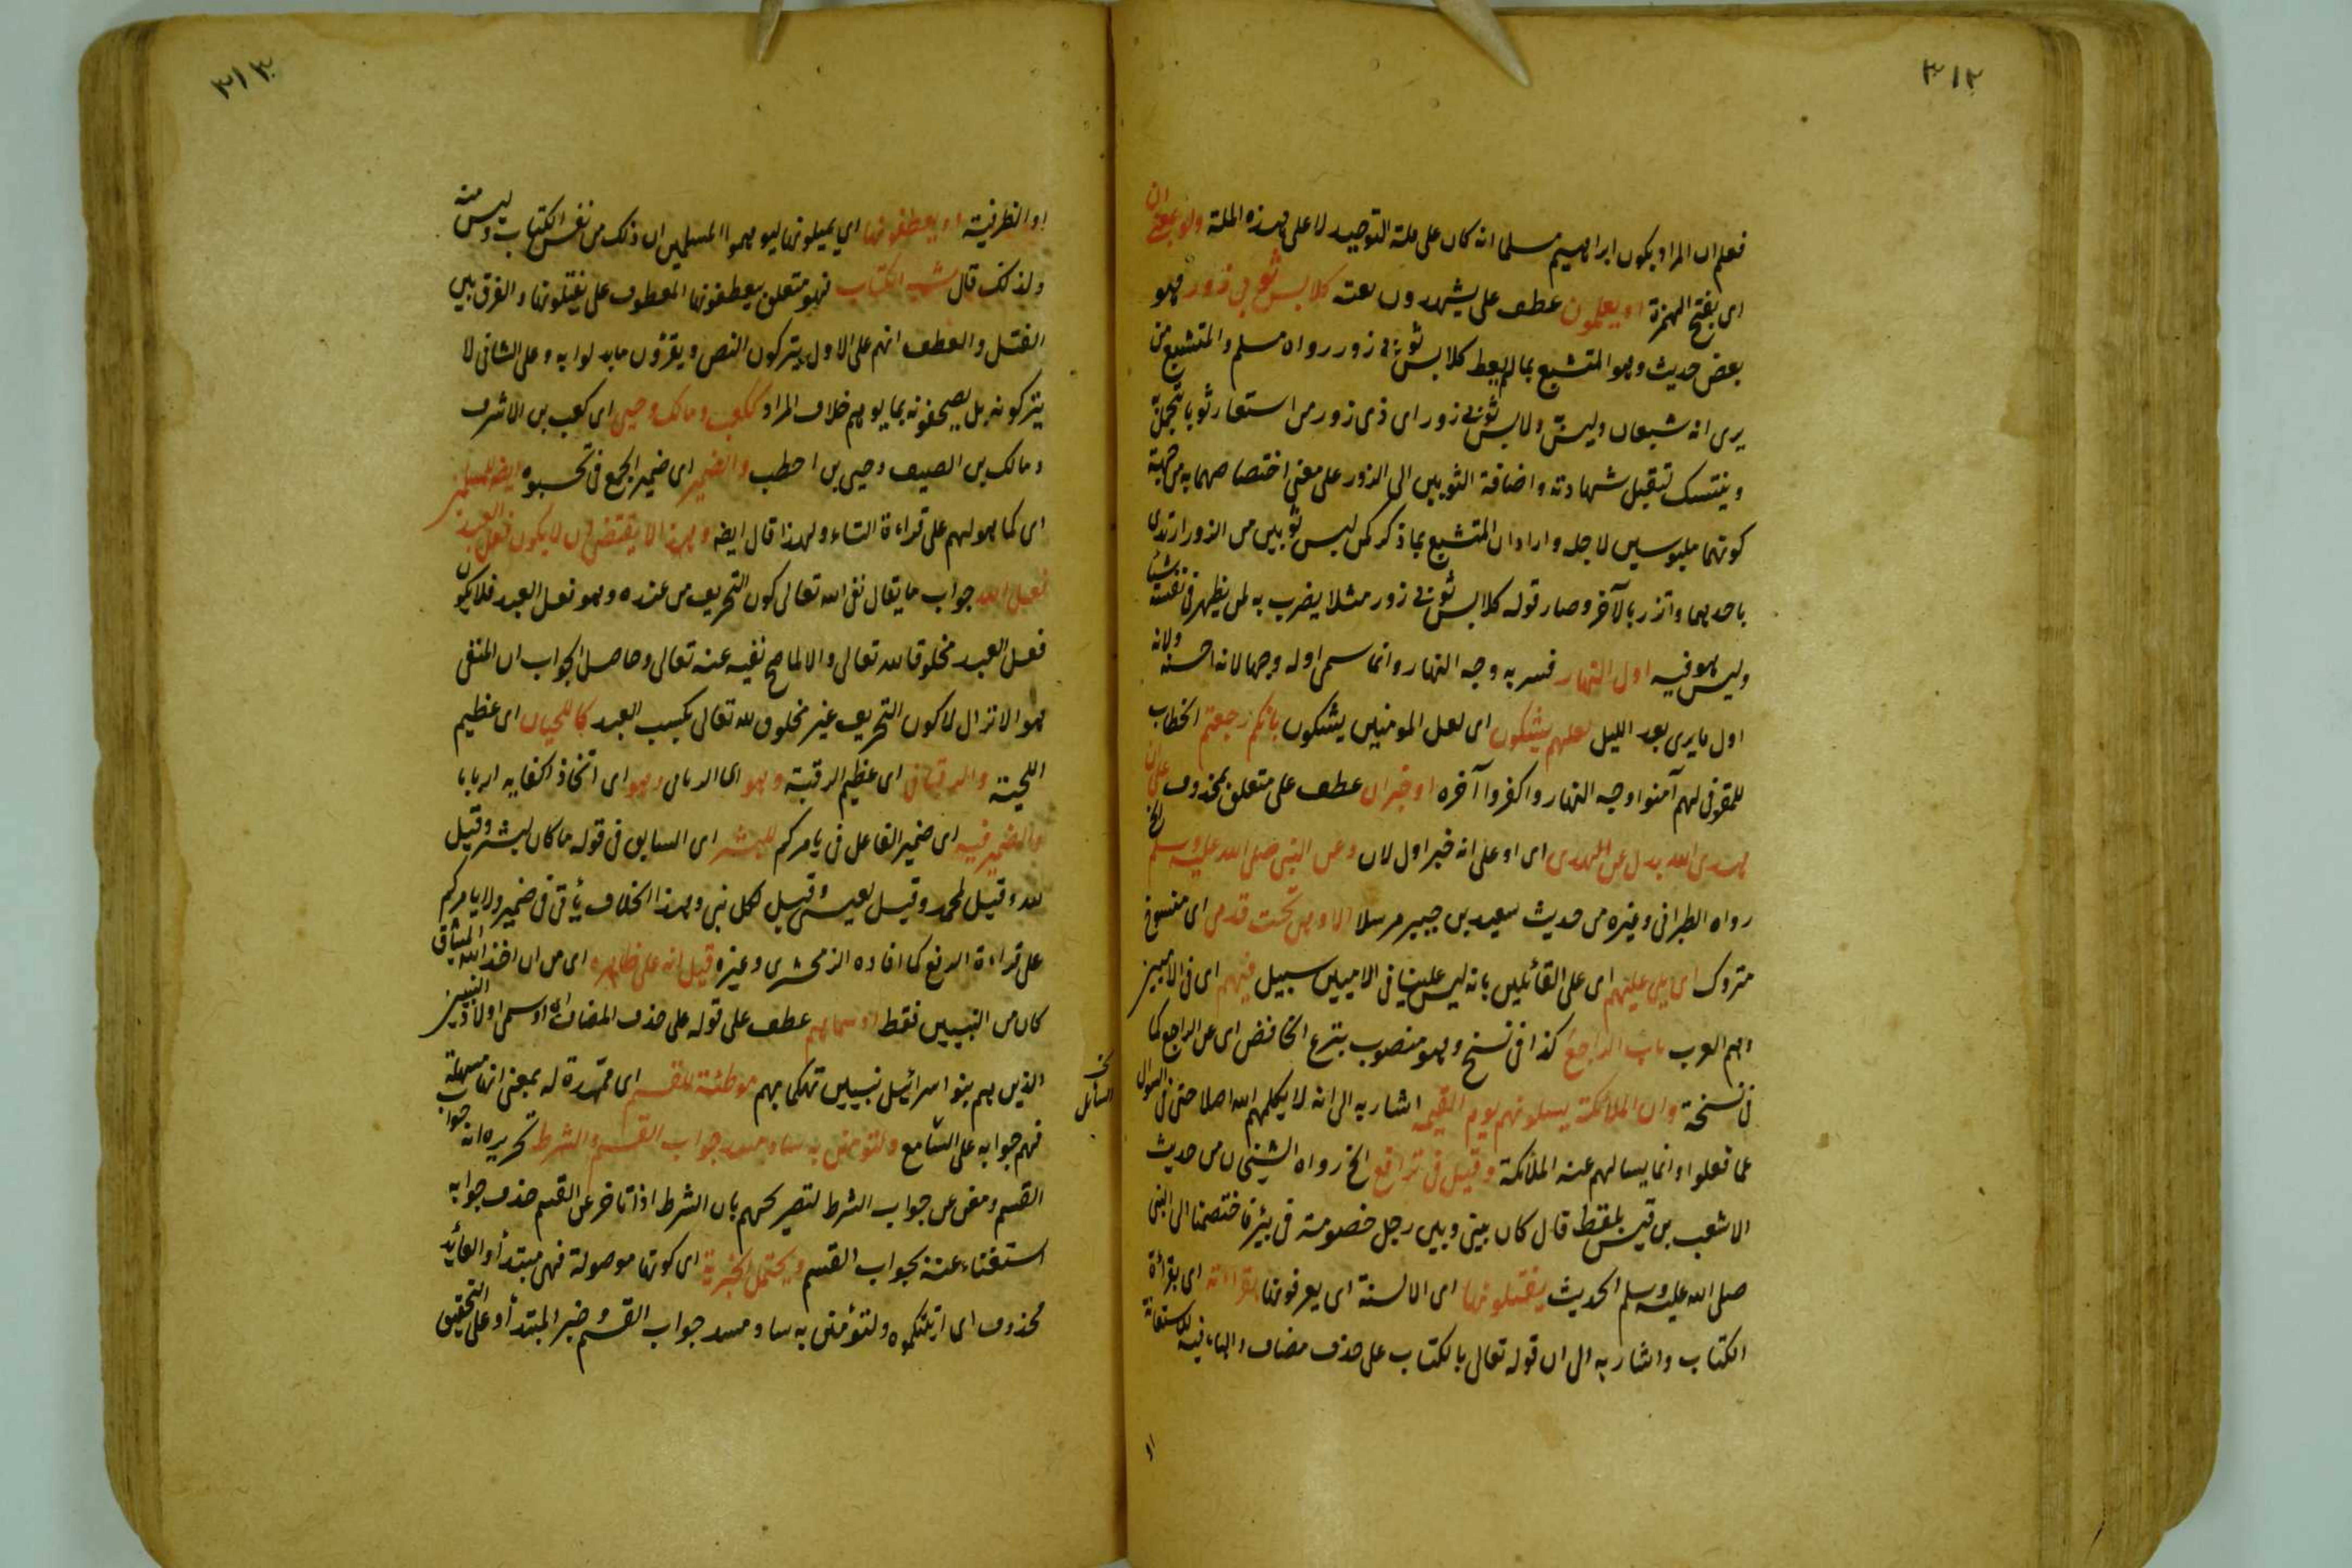 ٣١٢
فعلم ان المراد بكون ابراهيم مسلما انه كان على ملة التوحيد لا على هذه الملة
اى بفتح الهمزة او يعلمون عطف على يشهدون نعته كلابس ثوبى زور هو
بعض حديث وهو المتشبع بما لم يعط كلابس ثوبى زور رواه مسلم والمتشبع من
يرى انه شبعان وليس ولابس ثوبى زور اى ذى زور من استعار ثوبا يتجمل
ويتنسك لتقبل شهادته واضافة الثوبين الى الزور على معنى اختصاصهما به من جهة
كونهما ملبوسين لاجله واراد ان المتشبع بما ذكر كمن لبس ثوبين من الزور ارتدى
باحديهما واتزر بالآخر وصار قوله كلابس ثوبى زور مثلا يضرب به لمن يظهر فى نفسه شيئا
وليس هو فيه اول النهار فسر به وجه النهار وانما سمى اوله وجها لانه احسنه ولانه
اول ما يرى بعد الليل لعلهم يشكون اى لعل المومنين يشكون بانكم رجعتم الخطاب
للمقول لهم آمنوا وجه النهار واكفروا آخره او خبران عطف على متعلق بمحذوف على ان
هدى الله بدل عن الهدى اى او على انه خبر اول لان وعن النبى صلى الله عليه وسلم الخ
رواه الطبرانى وغيره من حديث سعيد بن جبير مرسلا الا وهى تحت قدمى اى منسوخ
متروك اى بلى عليهم اى على القائلين بانه ليس علينا فى الاميين سبيل فيهم اى فى الاميين
وهم العرب باب الراجع كذا فى نسخ وهو منصوب بنزع الخافض اى عن الراجع كما
فى نسخة وان الملائكة يسلونهم يوم القيمة اشار به الى انه لا يكلمهم الله اصلا حتى فى السوال
عما فعلوا وانما يسالهم عنه الملائكة وقيل فى ترافع الخ رواه الشيخان من حديث
الاشعب بن قيس بلفظ قال كان بينى وبين رجل خصومة فى بئر فاختصمنا الى النبى
صلى الله عليه وسلم الحديث يفتلونها اى الالسنة اى يعرفونها بقراءته اى بقراءة
الكتاب واشار به الى ان قوله تعالى بالكتاب على حذف مضاف والباء فيه للاستعانة
او
٣١٣
او الظرفية او يعطفونها اى يميلونها ليوهموا المسلمين ان ذلك من نفس الكتاب وليس منه
ولذلك قال بشبه الكتاب فهو متعلق بيعطفونها المعطوف على يفتلونها والفرق بين
الفتل والعطف انهم على الاول يتركون النص ويقرؤن ما بدلوا به وعلى الثانى لا
يتركونه بل يصحفونه بما يوهم خلاف المراد ككعب ومالك وحيى اى كعب بن الاشرف
ومالك بن الصيف وحيى بن اخطب والضمير اى ضمير الجمع فى تحسبوه ايضا للمسلمين
اى كما هو لهم على قراءة التاء ولهذا قال ايضا وهذا لا يقتضى ان لا يكون فعل العبد
فعل الله جواب ما يقال نفى الله تعالى كون التحريف من عنده وهو فعل العبد فلا يكون
فعل العبد مخلوقا لله تعالى والا لما صح نفيه عنه تعالى وحاصل الجواب ان المنفى
هو الانزال لا كون التحريف غير مخلوق لله تعالى بكسب العبد كاللحيانى اى عظيم
اللحية والرقبانى اى عظيم الرقبة وهو اى الربانى وهو اى اتخاذ اكفايه اربابا
والضمير فيه اى ضمير الفاعل فى يامركم للبشر اى السابق فى قوله ما كان لبشر وقيل
لله وقيل لمحمد وقيل لعيسى وقيل لكل نبى وهذا الخلاف يأتى فى ضمير ولا يامركم
على قراءة الرفع كما افاده الزمخشرى وغيره قيل انه على ظاهره اى من ان اخذ الله الميثاق
كان من النبيين فقط او سماهم عطف على قوله على حذف المضاف اى او سمى اولاد النبيين
الذين هم بنو اسرائيل نبيين تهكما بهم موطئة للقسم اى ممهدة له بمعنى انها مسهلة
فهم جوابه على السامع ولتؤمنن به ساد مسد جواب القسم والشرط تحريره انه جواب
القسم ومغن عن جواب الشرط لتصريحهم بان الشرط اذا تاخر عن القسم حذف جوابه
استغناء عنه بجواب القسم ويحتمل الخبرية اى كونها موصولة فهى مبتدأ والعائد
محذوف اى اتيتكموه ولتؤمنن به ساد مسد جواب القسم وخبر المبتدأ وعلى التحقيق
السائل